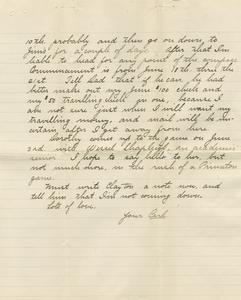 10th, probably and then go on down, to
Jims' for a couple of days. After that I'm
liable to head for any point of the compass.
Commencement is from June 16th, thru the
21st. Tell Dad that if he can, he had
better make out my June $100 check and
my $50 travelling check in one, because I
am not sure just when I will want my
travelling money, and mail will be un-
certain after I get away from here.
Dorothy comes up to the game on June
2nd with Wessel, an academic
senior. I hope to say hello to her, but
not much more, in the rush of a Princeton
game.
Must write Clayton a note now, and
tell him that I'm not coming down.
Lots of love.
Your Bob